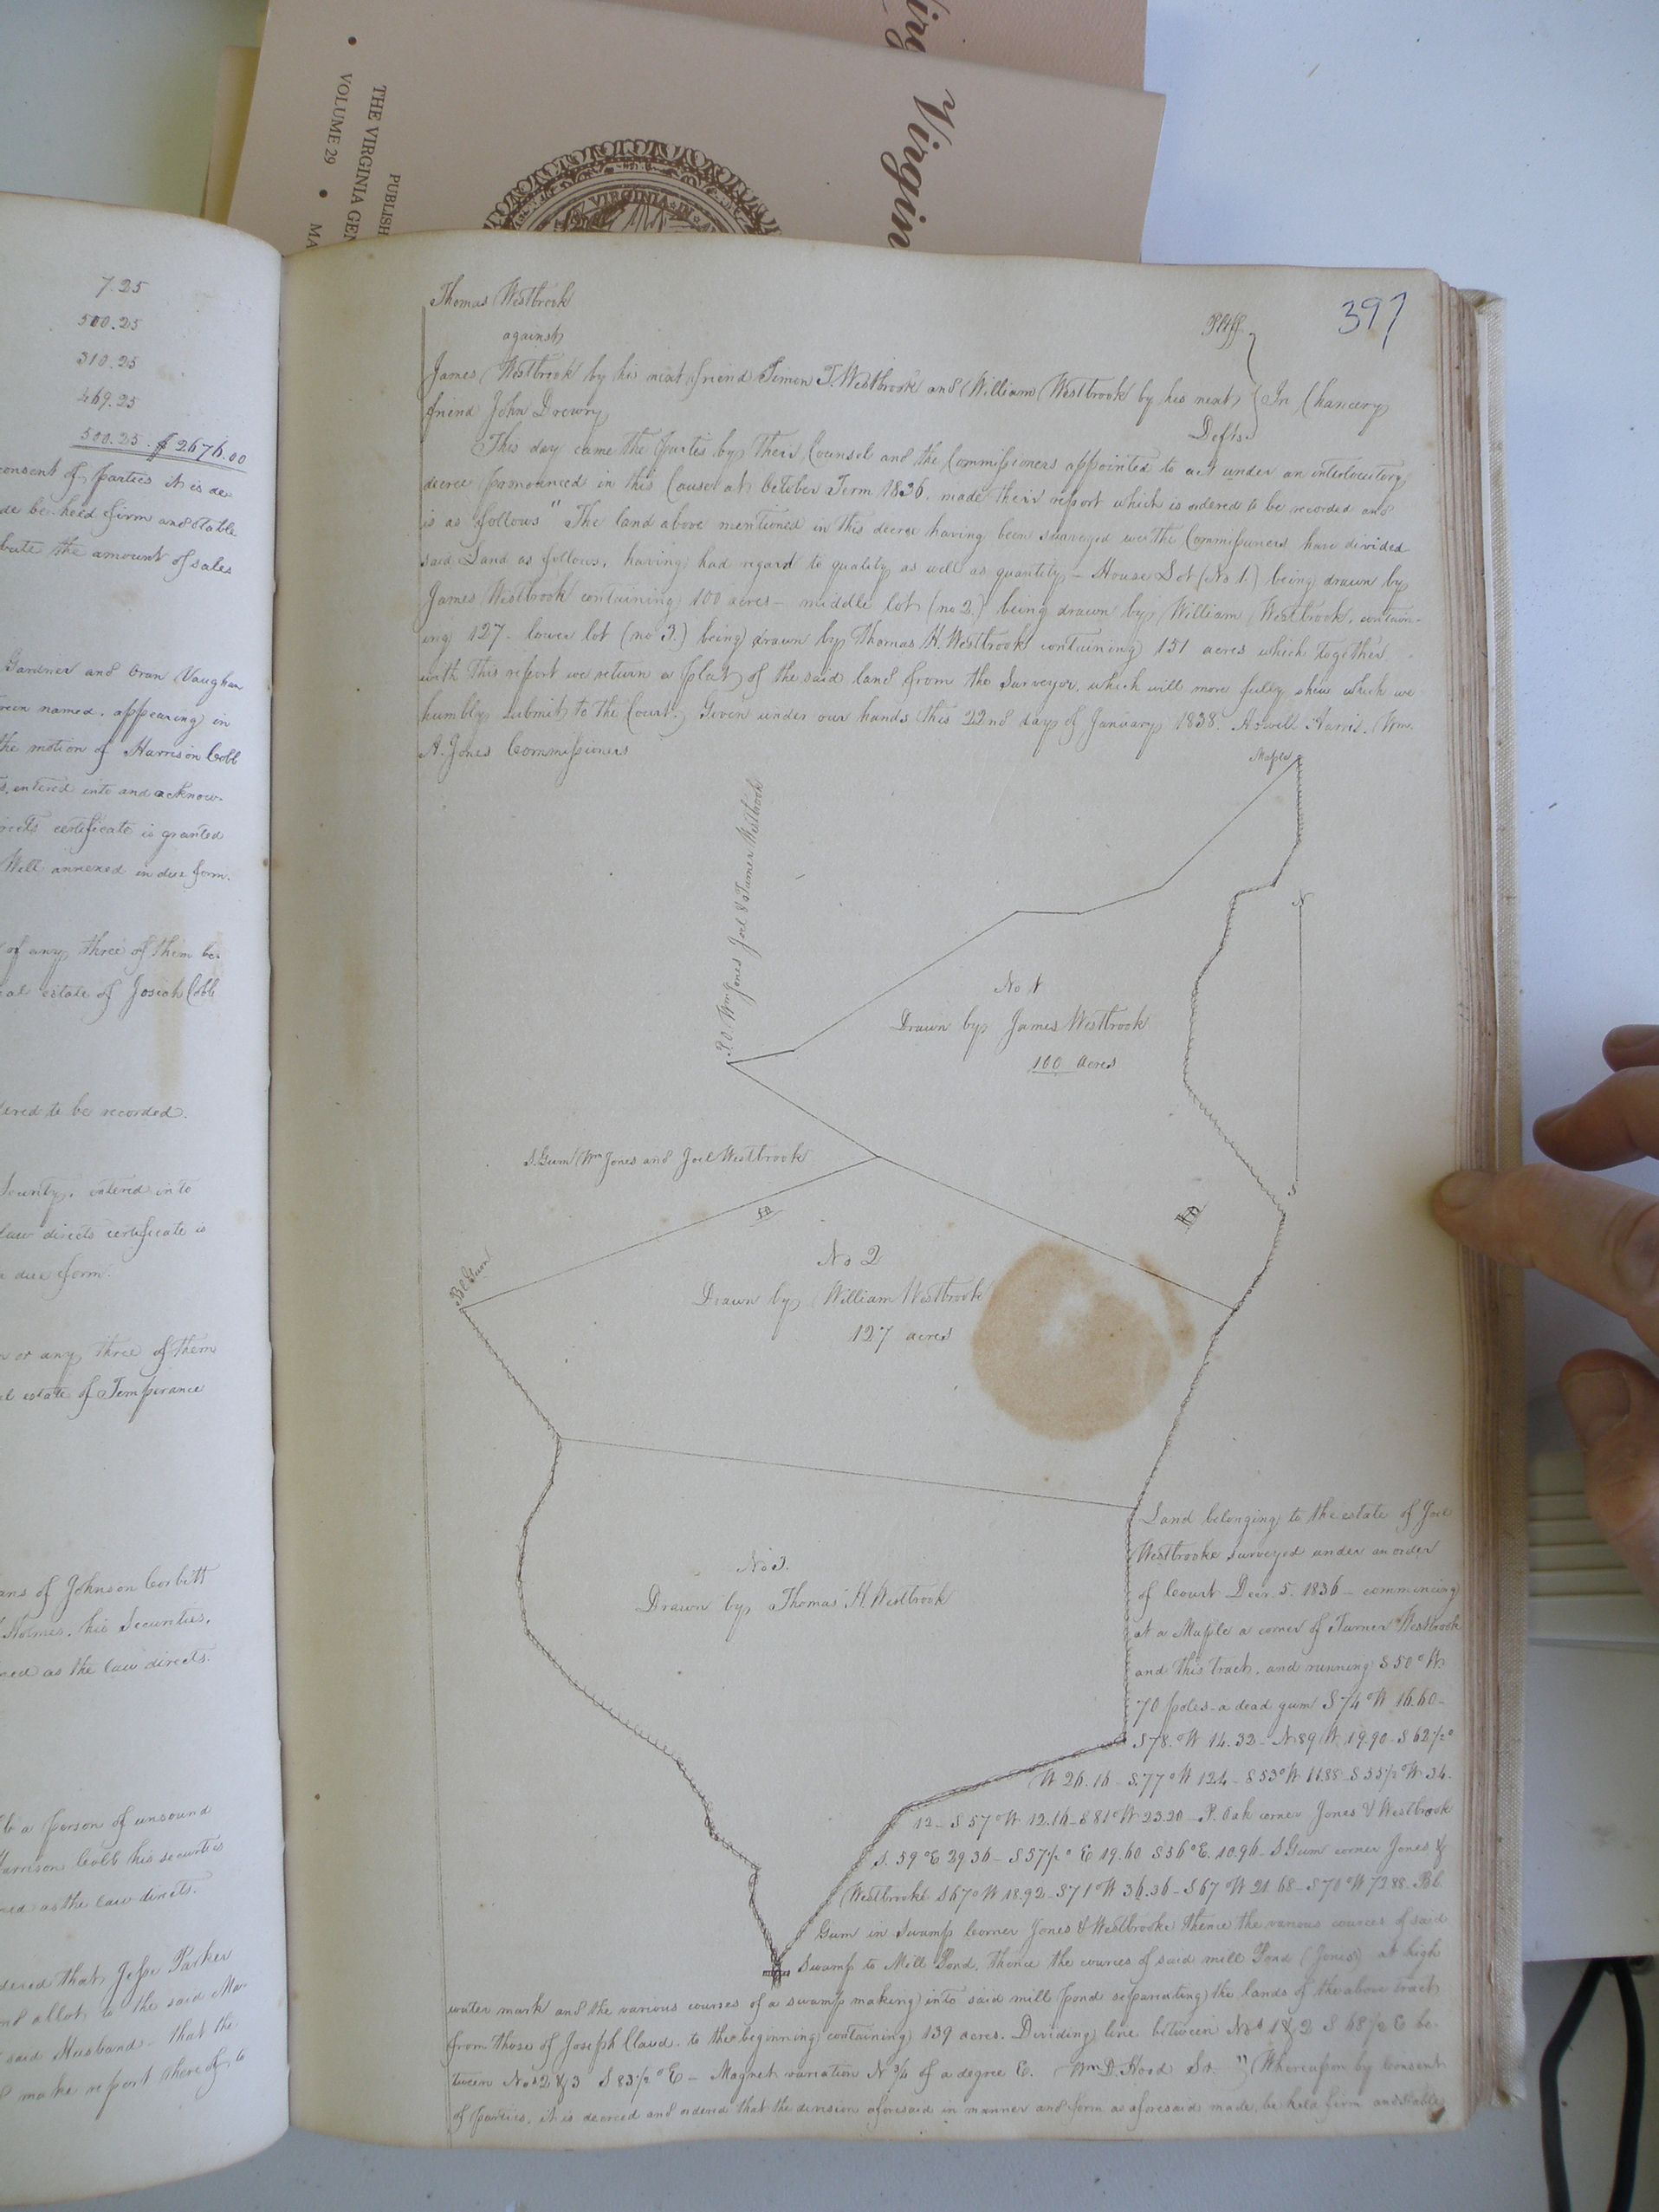 Virgin
PUBLISH
THE VIRGINIA GEN
• VOLUME 29 • MA
VIRGINIA IN
7.25
500.25
310.25
469.25
500.25. $2676.00
consent of parties it is de
de be held firm and stable
bute the amount of sales
Gardner and Oran Vaughan
rein named, appearing in
the motion of Harrison Cobb
s, entered into and acknow-
rects certificate is granted
Will annexed in due form.
of any three of them be-
al estate of Josiah Cobb
dered to be recorded.
County, entered into
law directs certificate is
n due form.
n or any three of them
al estate of Temperance
ans of Johnson Corbitt
Holmes, his Securities,
ned as the law directs.
to a person of unsound
Harrison Cobb his securities
ned as the law directs.
dered that Jesse Parker
nd allot to the said Ma-
said Husband - that the
d make report thereof to
397
Thomas Westbrook Pltff.
against
James Westbrook by his next friend Simon T. Westbrook and William Westbrook by his next } In Chancery
friend John Drewry Defts.
This day came the parties by their Counsel and the Commissioners appointed to act under an interlocutory
decree pronounced in this Cause at October Term 1836. made their report which is ordered to be recorded and
is as follows "The land above mentioned in this decree having been surveyed we the Commissioners have divided
said Land as follows, having had regard to quality as well as quantity - House Lot (No 1.) being drawn by
James Westbrook containing 100 acres - middle lot (no 2.) being drawn by William Westbrook, contain-
ing 127 - lower lot (no 3.) being drawn by Thomas H. Westbrook containing 151 acres which together
with this report we return a plat of the said land from the Surveyor, which will more fully shew which we
humbly submit to the Court. Given under our hands this 22nd day of January 1838. Howell Harris. Wm.
A. Jones Commissioners
Maple
P.O. Wm Jones Joel & Turner Westbrook
N
No 1
Drawn by James Westbrook
100 acres
S. Gum Wm Jones and Joel Westbrook
S
Bl Gum
No 2
Drawn by William Westbrook
127 acres
No 3.
Drawn by Thomas H. Westbrook
Land belonging to the estate of Joel
Westbrooke surveyed under an order
of Court Decr. 5. 1836 - commencing
at a Maple a corner of Turner Westbrook
and this tract, and running S 50° W
70 poles - a dead gum S 74° W 16.60 -
S 78.° W 14.32 - N 89 W. 19.90 - S 62½°
W 26.16 - S. 77° W 12.4 - S 53° W 11.88 - S 55½° W 34.
12 - S 57° W 12.16 - S 81° W 23.20 - P. Oak corner Jones & Westbrook
S. 59° E 29.36 - S 57½° E 19.60 S 56° E. 10.96 - S Gum corner Jones &
Westbrooke S 67° W 18.92 - S 71° W 36.36 - S 67 W 21.68 - S 70° W 72.88 - Bl.
Gum in Swamp Corner Jones & Westbrooke thence the various cources of said
Swamp to Mill Pond, thence the cources of said mill Pond (Jones) at high
water mark and the various courses of a swamp making into said mill pond separating the lands of the above tract
from those of Joseph Claud. to the beginning containing 139 acres. Dividing line between Nos 1 & 2 S 68½ E be-
tween Nos 2 & 3 S 83½° E - Magnet variation N ¾ of a degree E. Wm D. Hood Sr. " Whereupon by consent
of parties, it is decreed and ordered that the division aforesaid in manner and form as aforesaid made, be held firm and stable